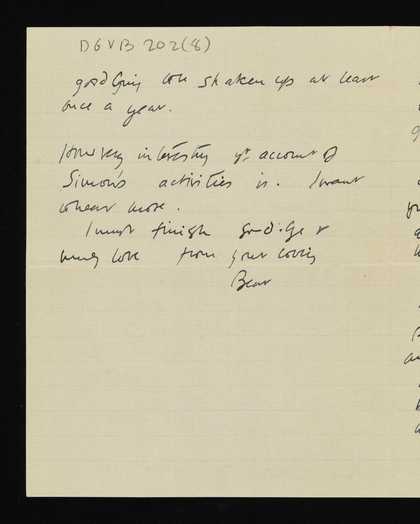 DGVB 202(8)
good being shaken up at least
once a year.
How very interesting yr account of
Simon's activities is. I want
to hear more.
I must finish good-bye &
much love from your loving
Bear